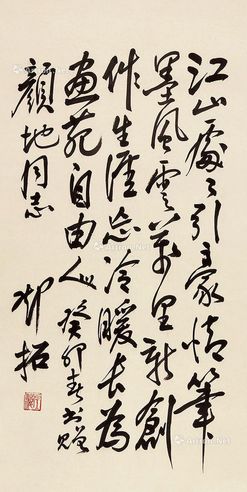 江山處々引豪情筆
墨風雲萬里新創
作生涯忘冷暖长為
畫苑自由人 癸卯春书贈
顏地同志
鄧拓